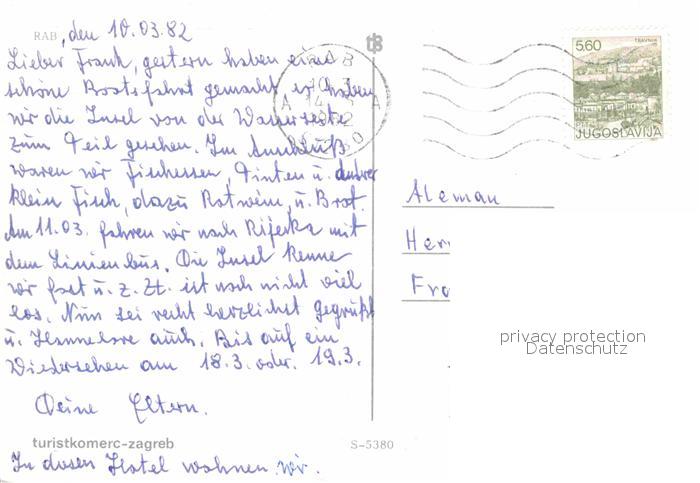 RAB, den 10.03.82
Lieber Frank, gestern haben eine
schöne Bootsfahrt gemacht, es haben
wir die Insel von der Wasserseite
zum Teil gesehen. Im Anschluß
waren wir Fischessen, Tinten u. andrer
klein Fisch, dazu Rotwein, u. Brot.
Am 11.03. fahren wir nach Rijecka mit
dem Linienbus. Die Insel kenne
wir fast u. z. Zt. ist noch nicht viel
los. Nun sei recht herzlichst gegrüßt
u. Hannelore auch. Bis auf ein
Wiedersehen am 18.3. oder. 19.3.
Deine Eltern.
turistkomerc-zagreb
S-5380
In diesen Hotel wohnen wir.
tz
RAB
5.60
TRAVNIK
PTT
JUGOSLAVIJA
Aleman
Her
Fra
privacy protection
Datenschutz